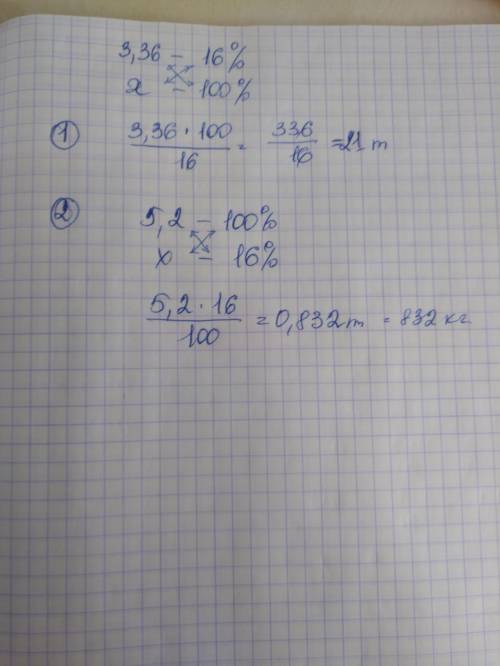 3,36 – 16%
x – 100%
① 3,36 · 100 / 16 = 336 / 16 = 21 т
② 5,2 – 100%
x – 16%
5,2 · 16 / 100 = 0,832 т = 832 кг